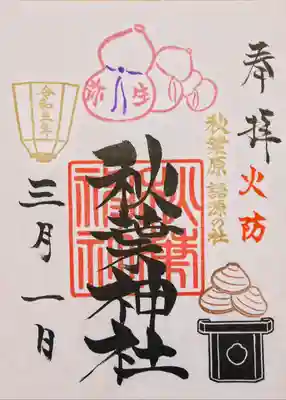 奉拝
火防
秋葉原 語源の社
弥生
秋葉神社
令和三年
三月一日